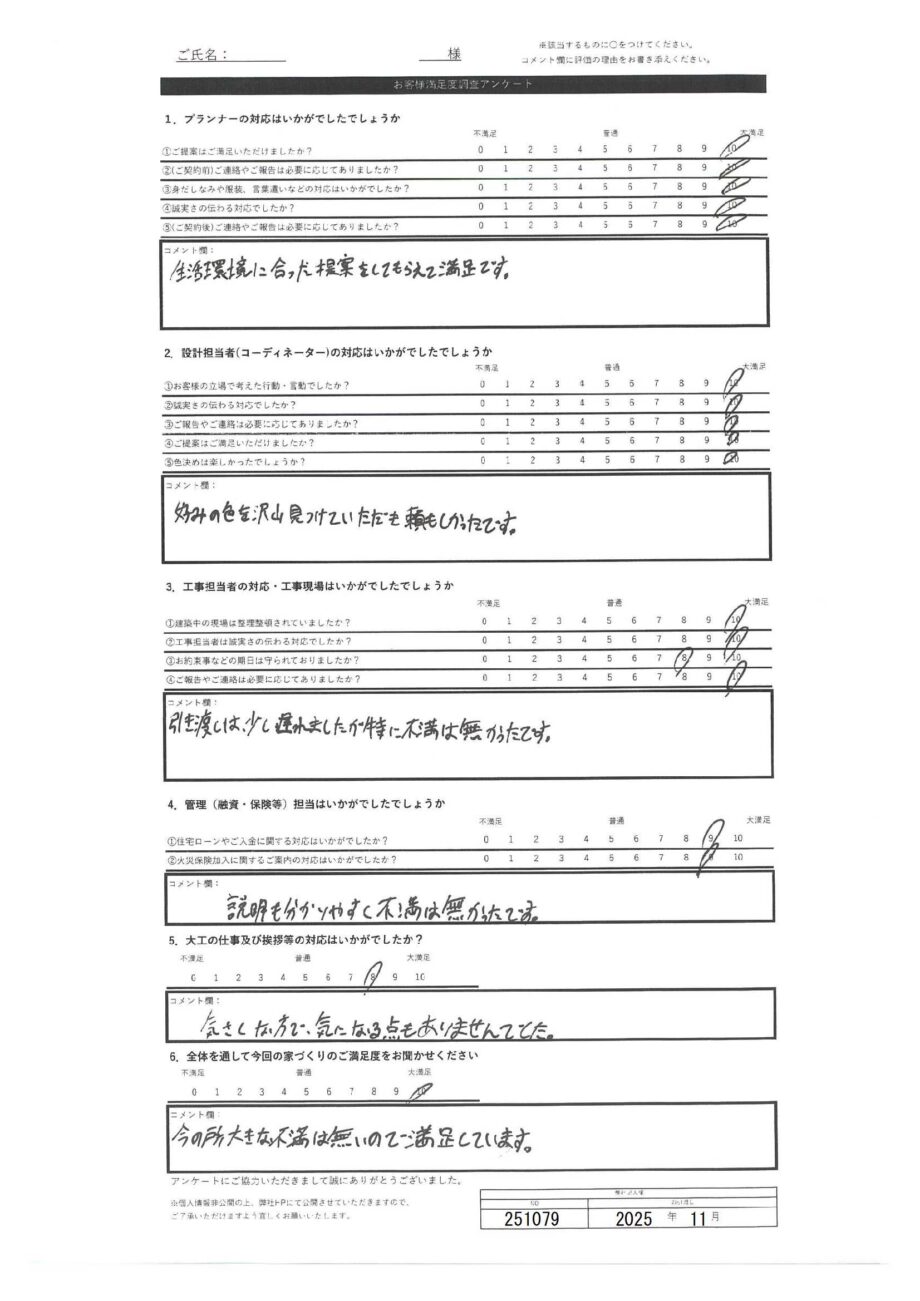 ご氏名： 様
※該当するものに○をつけてください。
コメント欄に評価の理由をお書き添えください。
お客様満足度調査アンケート
1．プランナーの対応はいかがでしたでしょうか
不満足 普通 大満足
①ご提案はご満足いただけましたか？ 0 1 2 3 4 5 6 7 8 9 10
②(ご契約前)ご連絡やご報告は必要に応じてありましたか？ 0 1 2 3 4 5 6 7 8 9 10
③身だしなみや服装、言葉遣いなどの対応はいかがでしたか？ 0 1 2 3 4 5 6 7 8 9 10
④誠実さの伝わる対応でしたか？ 0 1 2 3 4 5 6 7 8 9 10
⑤(ご契約後)ご連絡やご報告は必要に応じてありましたか？ 0 1 2 3 4 5 6 7 8 9 10
コメント欄：
生活環境に合った提案をしてもらえて満足です。
2．設計担当者(コーディネーター)の対応はいかがでしたでしょうか
不満足 普通 大満足
①お客様の立場で考えた行動・言動でしたか？ 0 1 2 3 4 5 6 7 8 9 10
②誠実さの伝わる対応でしたか？ 0 1 2 3 4 5 6 7 8 9 10
③ご報告やご連絡は必要に応じてありましたか？ 0 1 2 3 4 5 6 7 8 9 10
④ご提案はご満足いただけましたか？ 0 1 2 3 4 5 6 7 8 9 10
⑤色決めは楽しかったでしょうか？ 0 1 2 3 4 5 6 7 8 9 10
コメント欄：
好みの色を沢山見つけていただも頼もしかったです。
3．工事担当者の対応・工事現場はいかがでしたでしょうか
不満足 普通 大満足
①建築中の現場は整理整頓されていましたか？ 0 1 2 3 4 5 6 7 8 9 10
②工事担当者は誠実さの伝わる対応でしたか？ 0 1 2 3 4 5 6 7 8 9 10
③お約束事などの期日は守られておりましたか？ 0 1 2 3 4 5 6 7 8 9 10
④ご報告やご連絡は必要に応じてありましたか？ 0 1 2 3 4 5 6 7 8 9 10
コメント欄：
引き渡しは、少し遅れましたが特に不満は無かったです。
4．管理（融資・保険等）担当はいかがでしたでしょうか
不満足 普通 大満足
①住宅ローンやご入金に関する対応はいかがでしたか？ 0 1 2 3 4 5 6 7 8 9 10
②火災保険加入に関するご案内の対応はいかがでしたか？ 0 1 2 3 4 5 6 7 8 9 10
コメント欄：
説明も分かりやすく不満は無かったです。
5．大工の仕事及び挨拶等の対応はいかがでしたか？
不満足 普通 大満足
0 1 2 3 4 5 6 7 8 9 10
コメント欄：
気さくな方で、気になる点もありませんでした。
6．全体を通して今回の家づくりのご満足度をお聞かせください
不満足 普通 大満足
0 1 2 3 4 5 6 7 8 9 10
コメント欄：
今の所大きな不満は無いのでご満足しています。
アンケートにご協力いただきまして誠にありがとうございました。
※個人情報非公開の上、弊社HPにて公開させていただきますので、
ご了承いただけますよう宜しくお願いいたします。
弊社記入欄
NO お引渡し
251079 2025 年 11 月